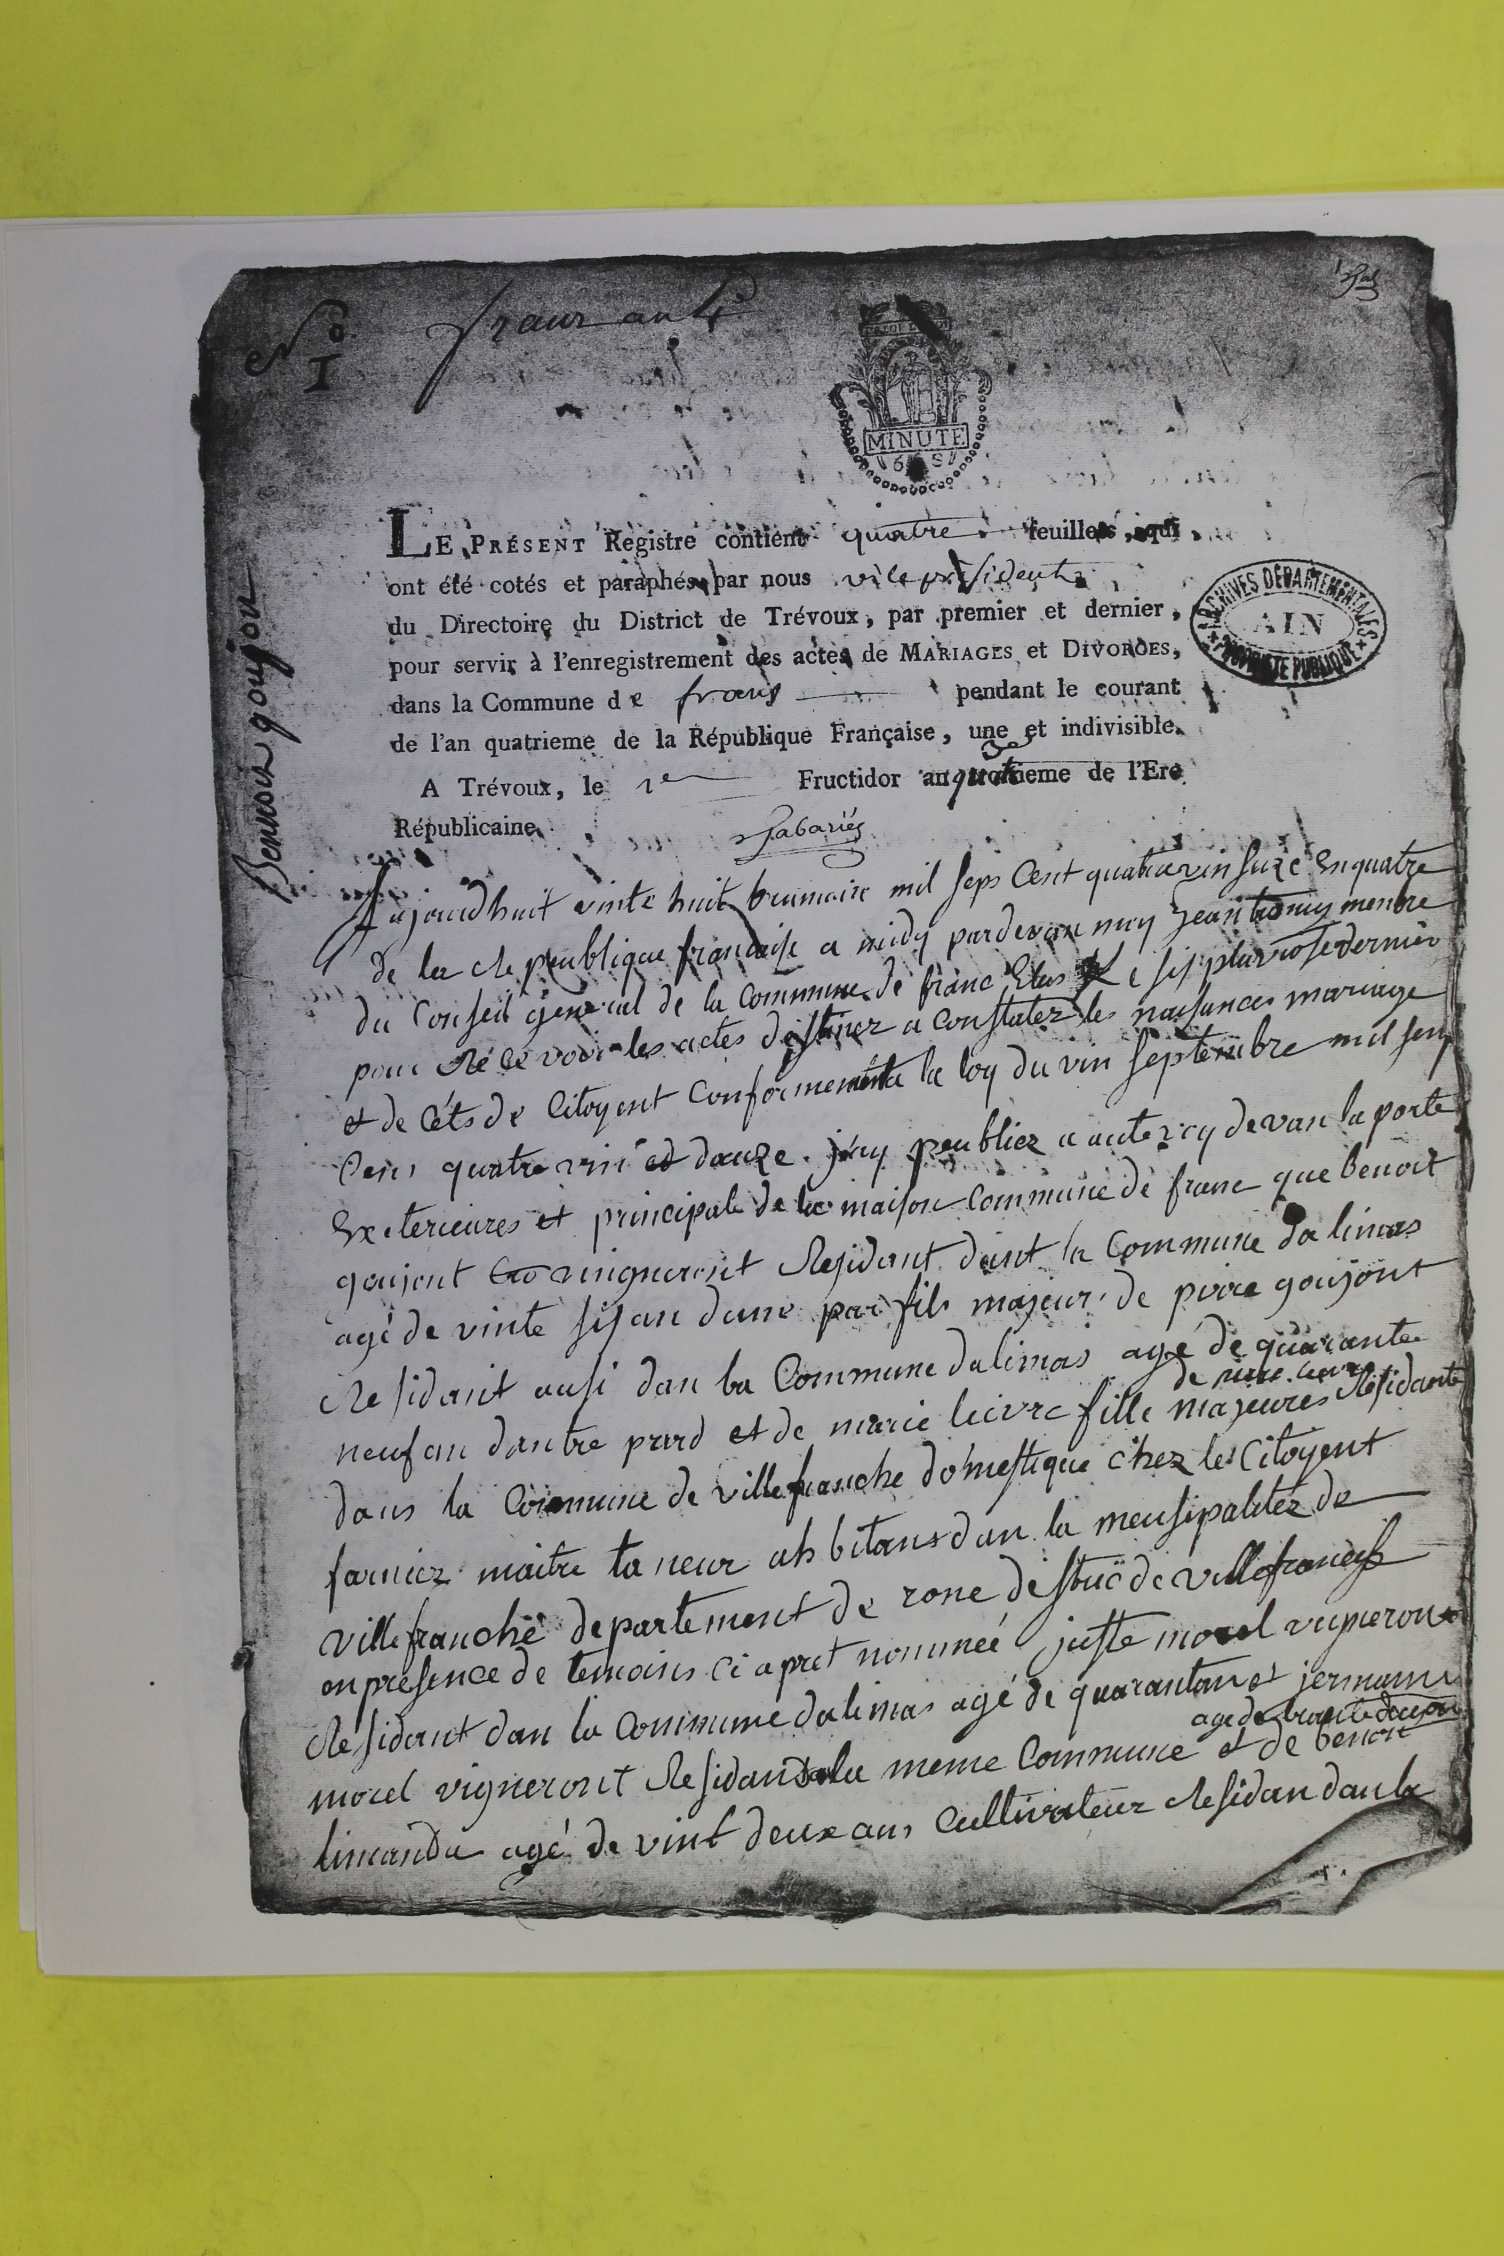 No
1
frans an 4e
1er
MINUTE
6 S
LE PRÉSENT Registre contient quatre feuillets, qui
ont été cotés et paraphés par nous vice président
du Directoire du District de Trévoux, par premier et dernier,
pour servir à l'enregistrement des actes de MARIAGES et DIVORCES,
dans la Commune de frans pendant le courant
de l'an quatrieme de la République Française, une et indivisible.
A Trévoux, le 1er Fructidor an quatrieme de l'Ere
Républicaine.
ARCHIVES DÉPARTEMENTALES
AIN
PROPRIÉTÉ PUBLIQUE
Bennoit goujon
Aujourdhuit vinte huit brumaire mil seps Cent quatrevin suze En quatre
de la Republique francaise a midy pardevan moy Jean menbre
du Conseil general de la Commune de franc Elus Le sis pluviose dernier
pour Recevoir les actes destinez a Constater les naissances mariage
et de Céts de Citoyent Conformementa la loy du vin septembre mil sep
Cens quatre vin et douze. j'ay peubliez a aute voy devan la porte
Exterieures et principale de la maison Commune de franc que benoit
goujont vingneront Residant dant la Commune dalimas
agé de vinte sis an dune par fils majeur de pirre goujont
Residant ausi dan la Commune dalimas agé de quarante
neuf an dautre pard et de marie lievre fille majeures Residante
de pirre lievre
dans la Commune de villefranche domestique chez les Citoyent
farniez maitre taneur ahbitans dan la meusipalitéz de
villefranche departement de rone de villefranche
en presence de temoins ci apret nommeé juste morel vigneront
Residant dan la Commune dalimas agé de quarantan et jermain
morel vigneront Residans dala meme Commune et de benoit
agé de trante deu an
limandu agé de vint deux ans Cultivateur Residan dan la